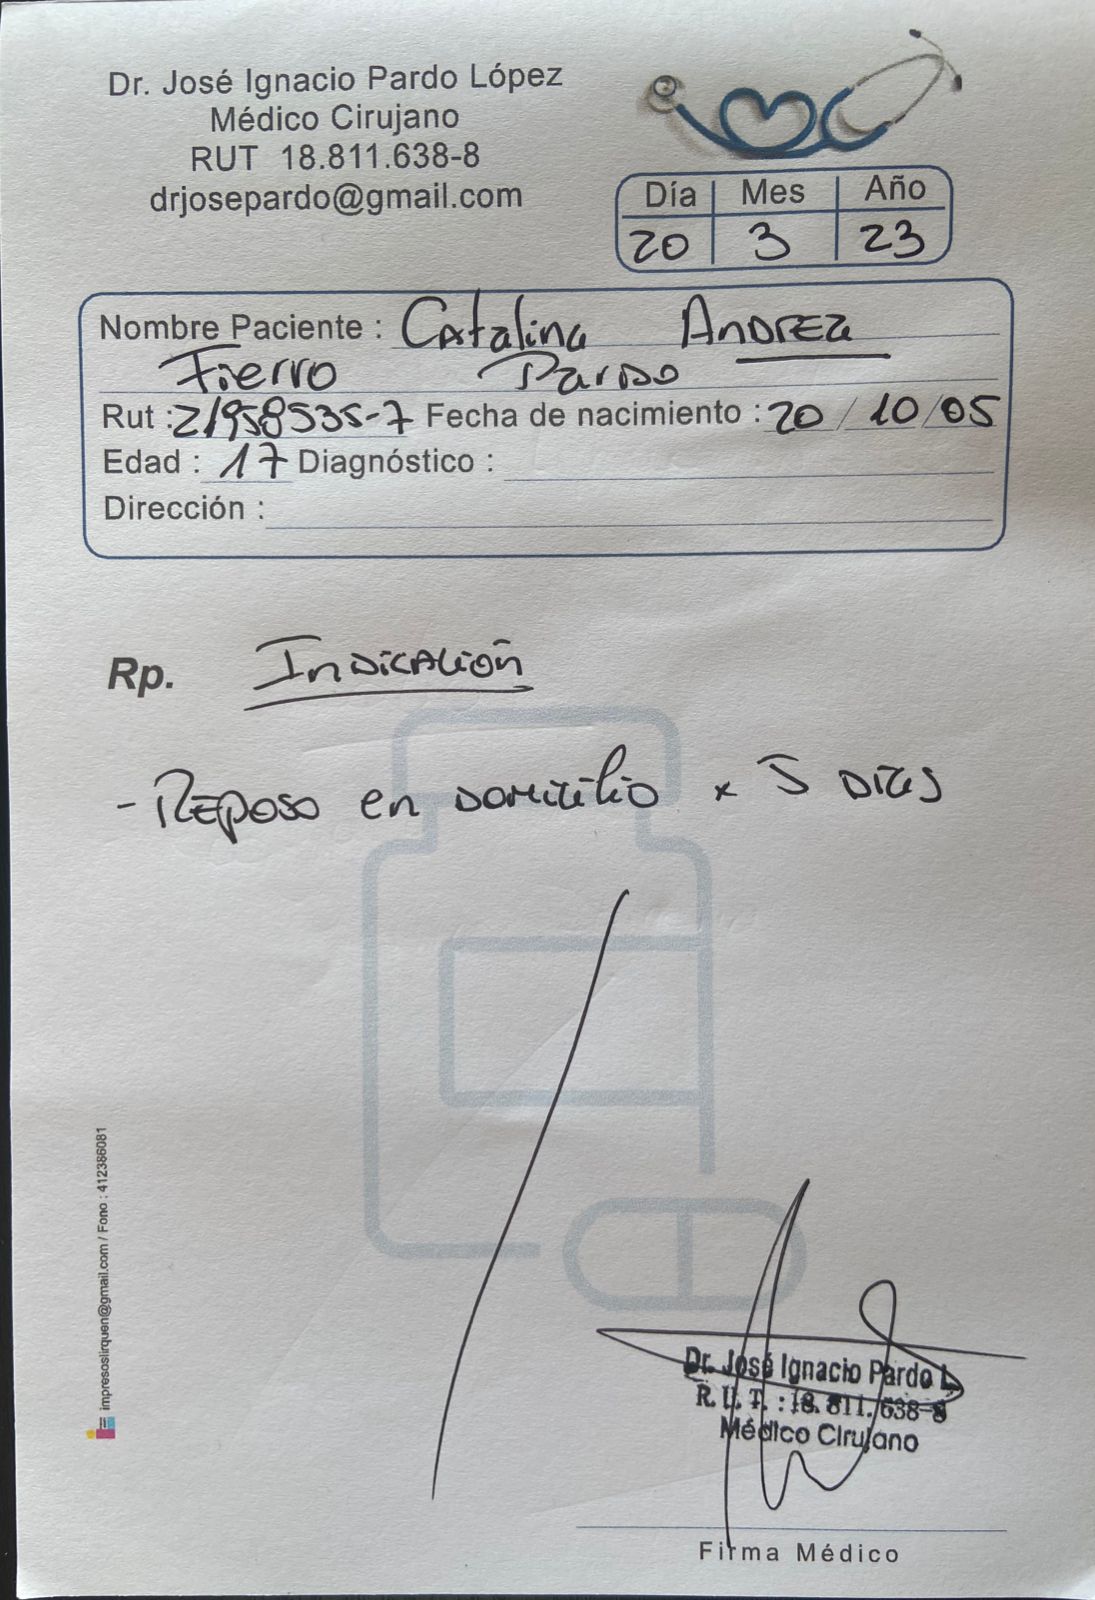 Dr. José Ignacio Pardo López
Médico Cirujano
RUT 18.811.638-8
drjosepardo@gmail.com
Día Mes Año
20 3 23
Nombre Paciente : Catalina Andrea
Fierro Pardo
Rut : 21958535-7 Fecha de nacimiento : 20 / 10 / 05
Edad : 17 Diagnóstico :
Dirección :
Rp. Indicación
- Reposo en domicilio x 5 días
impresoslirquen@gmail.com / Fono : 412386081
Dr. José Ignacio Pardo L.
R.U.T. : 18.811.638-8
Médico Cirujano
Firma Médico